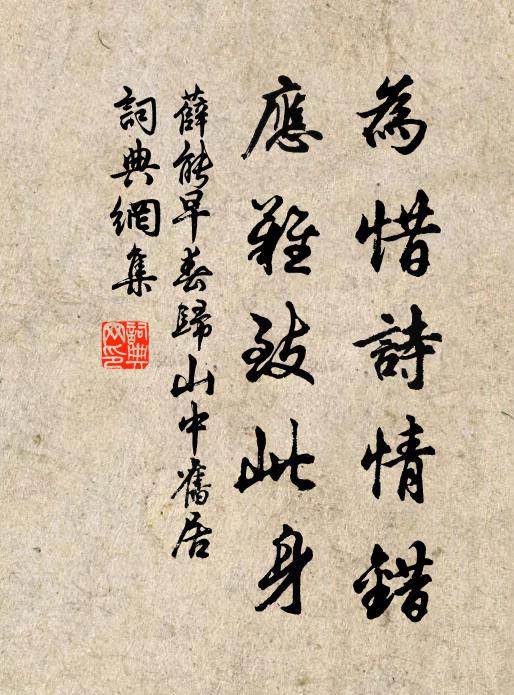 為惜詩情錯
應難致此身
薛能早春歸山中舊居
詞典網集
詞典網印